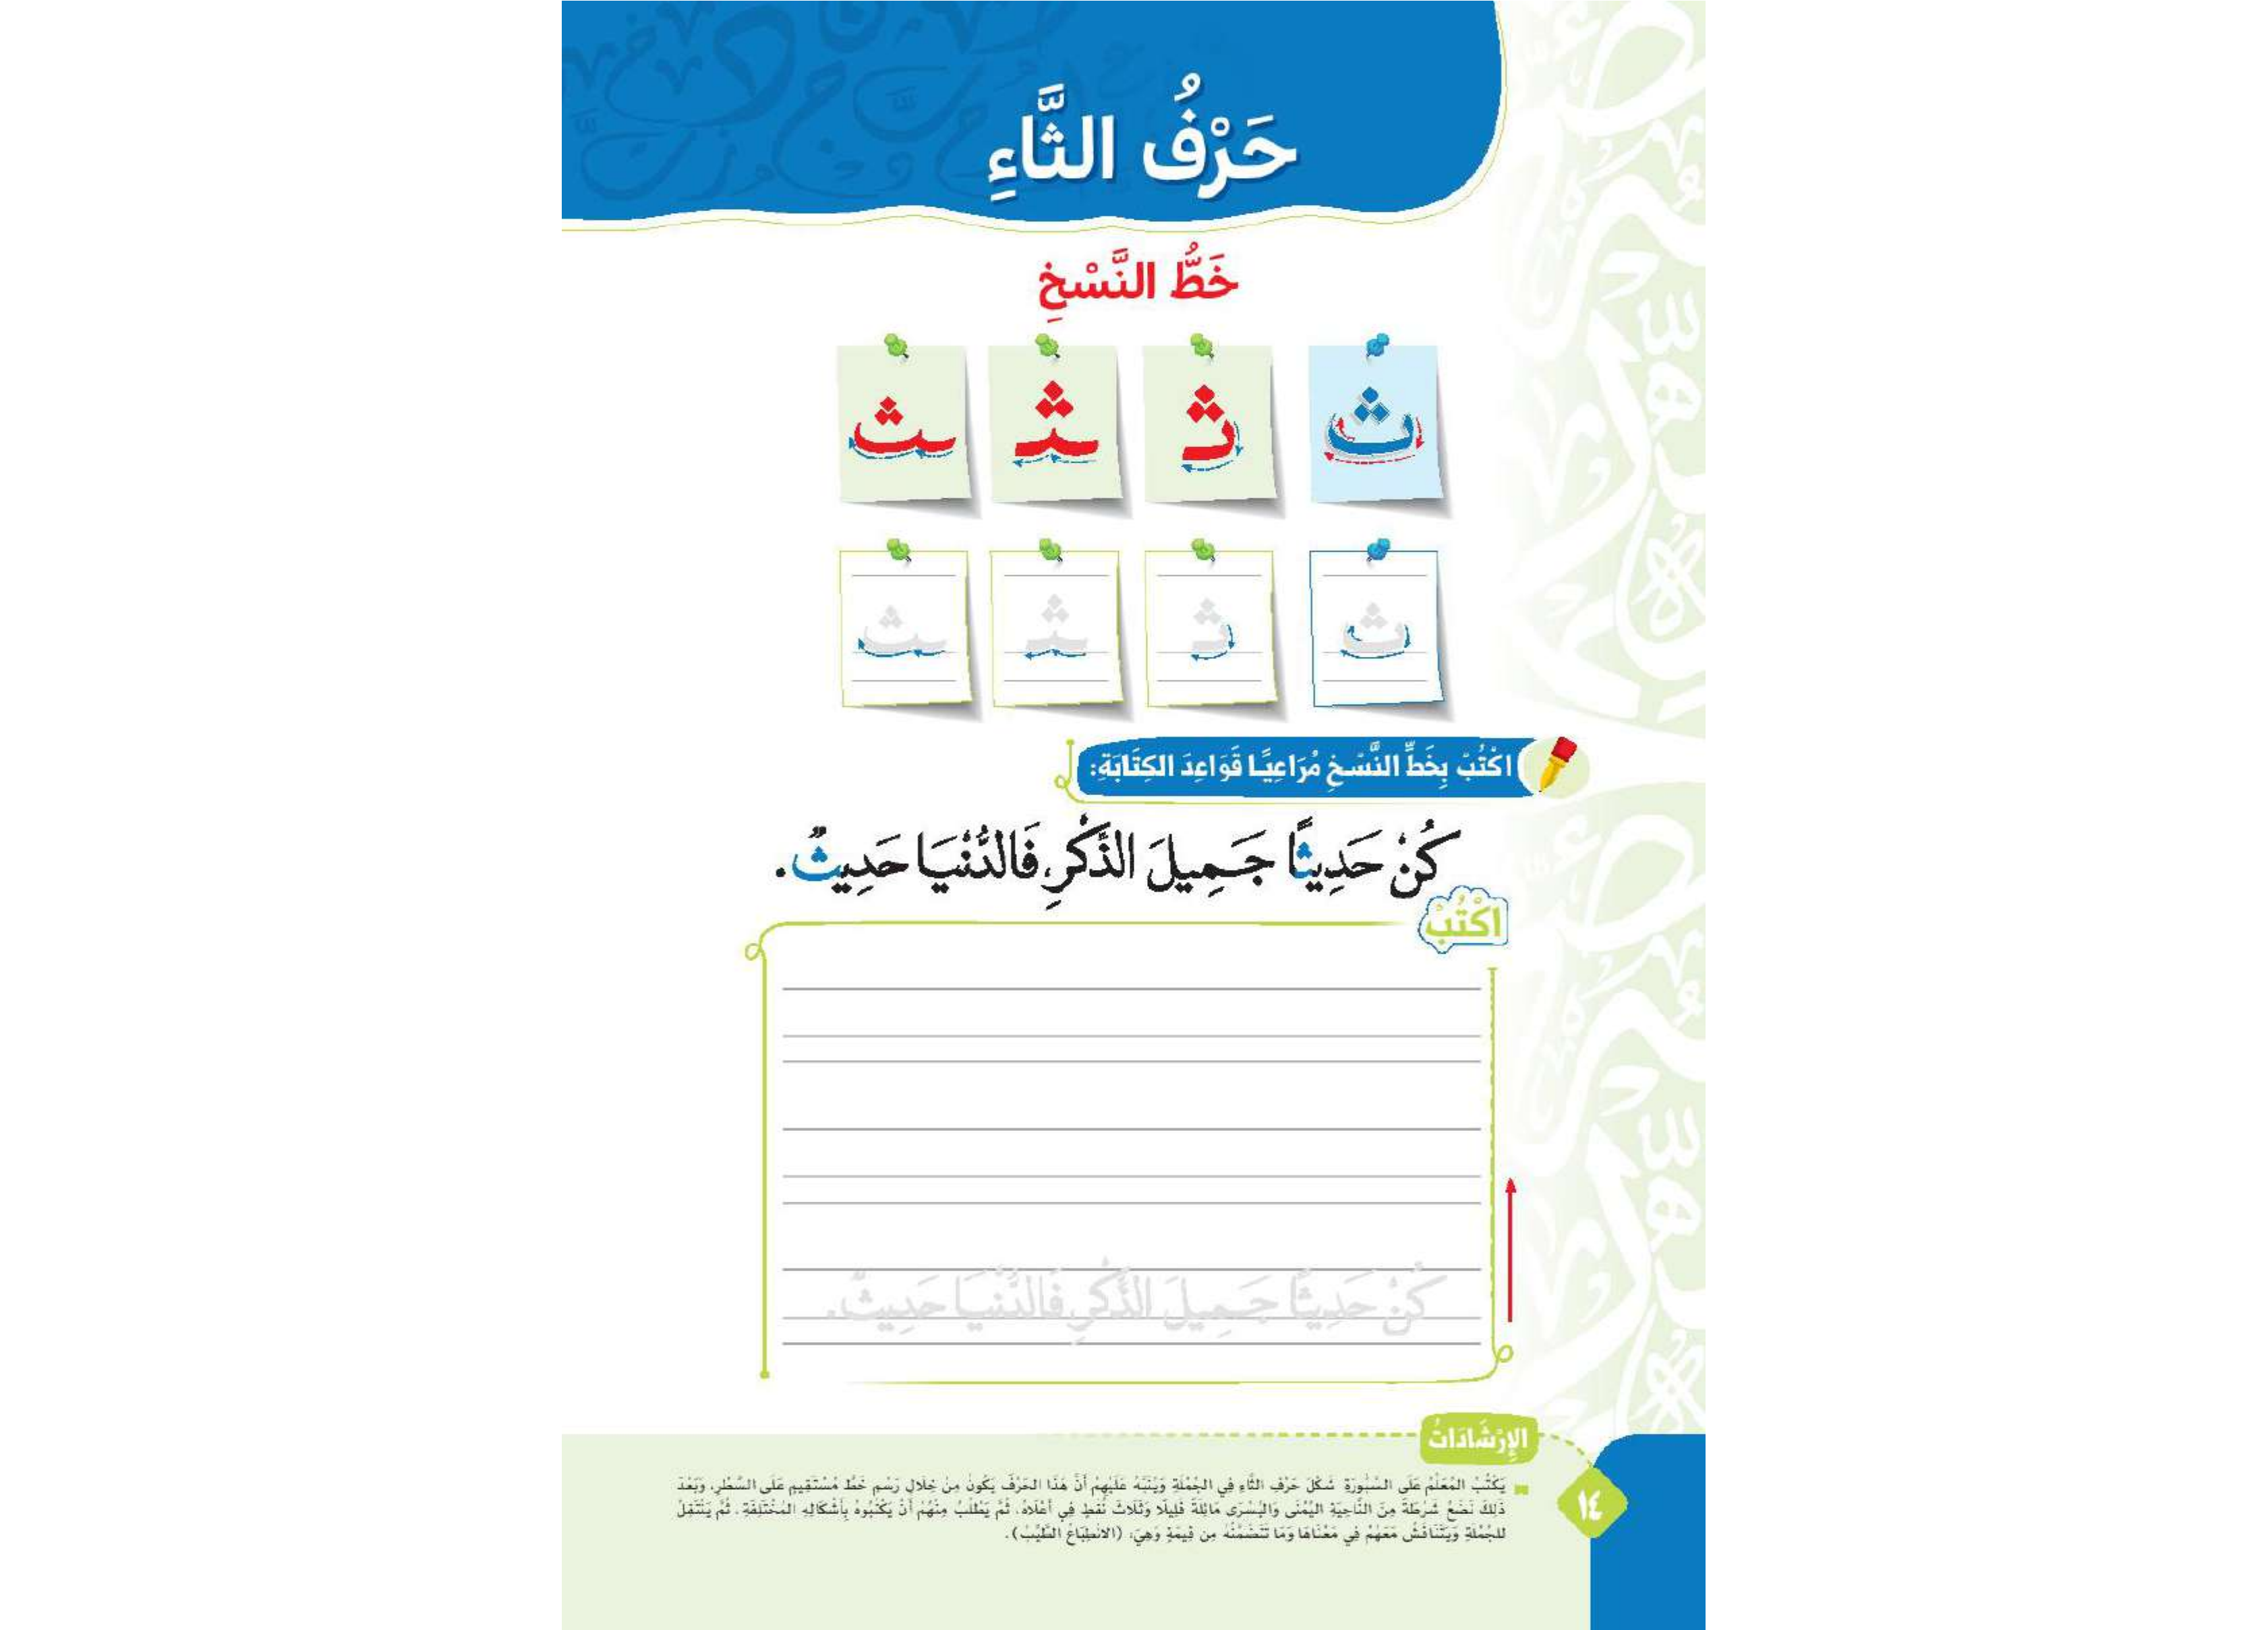 حَرْفُ الثَّاءِ
خَطُّ النَّسْخِ
ث ثـ ـثـ ـث
ث ثـ ـثـ ـث
اكْتُبْ بِخَطِّ النَّسْخِ مُرَاعِيًا قَوَاعِدَ الكِتَابَةِ:
كُنْ حَدِيثًا جَمِيلَ الذِّكْرِ، فَالدُّنْيَا حَدِيثٌ.
اكْتُبْ
كُنْ حَدِيثًا جَمِيلَ الذِّكْرِ، فَالدُّنْيَا حَدِيثٌ.
الإِرْشَادَاتُ
يَكْتُبُ المُعَلِّمُ عَلَى السَّبُّورَةِ شَكْلَ حَرْفِ الثَّاءِ فِي الجُمْلَةِ وَيُنَبِّهُ عَلَيْهِمْ أَنَّ هَذَا الحَرْفَ يَكُونُ مِنْ خِلَالِ رَسْمِ خَطٍّ مُسْتَقِيمٍ عَلَى السَّطْرِ، وَبَعْدَ
ذَلِكَ نَضَعُ شَرْطَةً مِنَ النَّاحِيَةِ اليُمْنَى وَاليُسْرَى مَائِلَةً قَلِيلًا وَثَلَاثَ نُقَطٍ فِي أَعْلَاهُ، ثُمَّ يَطْلُبُ مِنْهُمْ أَنْ يَكْتُبُوهُ بِأَشْكَالِهِ المُخْتَلِفَةِ، ثُمَّ يَنْتَقِلُ
لِلجُمْلَةِ وَيَتَنَاقَشُ مَعَهُمْ فِي مَعْنَاهَا وَمَا تَتَضَمَّنُهُ مِنْ قِيمَةٍ وَهِيَ: (الانْطِبَاعُ الطَّيِّبُ).
١٤